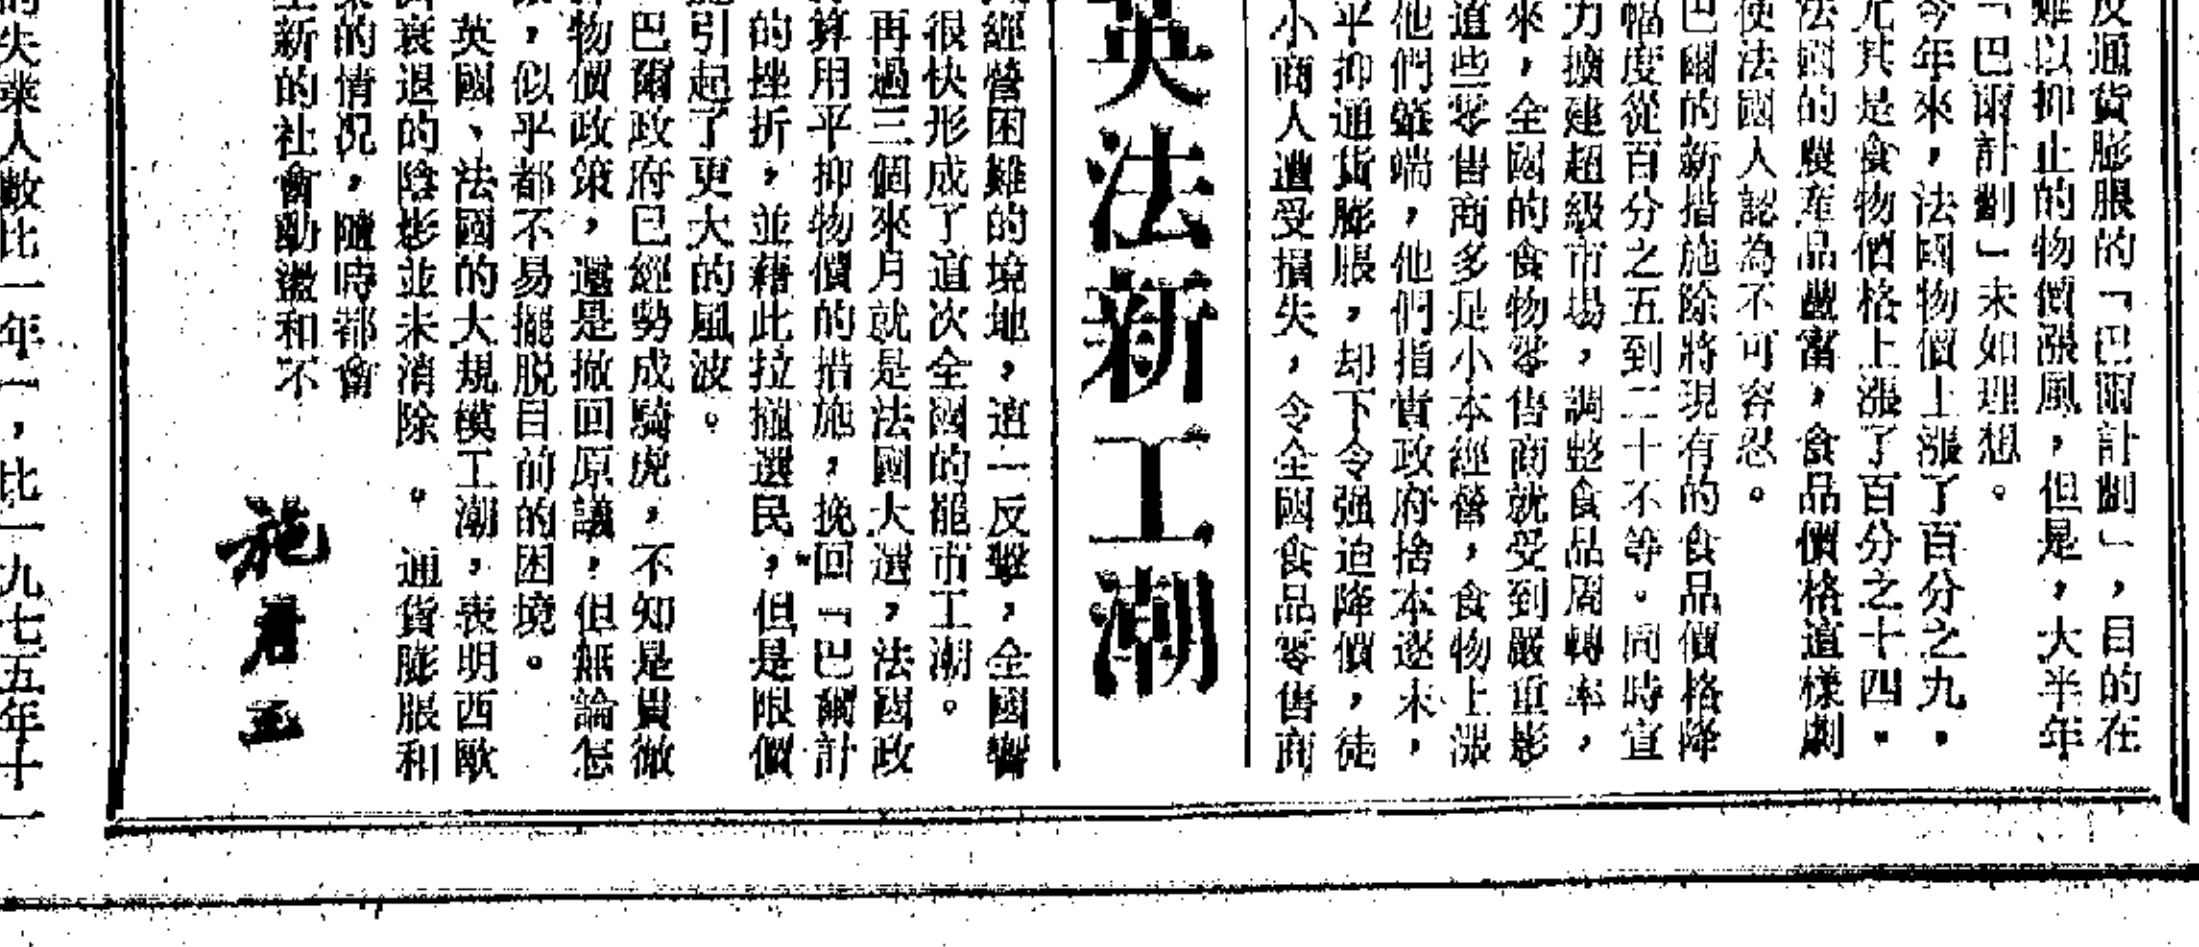 反通貨膨脹的「巴爾計劃」，目的在
難以抑止的物價漲風，但是，大半年
「巴爾計劃」未如理想。
今年來，法國物價上漲了百分之九，
尤其是食物價格上漲了百分之十四。
法國的農產品豐富，食品價格這樣劇
使法國人認為不可容忍。
巴爾的新措施除將現有的食品價格降
幅度從百分之五到二十不等。同時宣
力擴建超級市場，調整食品周轉率，
來，全國的食物零售商就受到嚴重影
這些零售商多是小本經營，食物上漲
他們肇端，他們指責政府捨本逐末，
平抑通貨膨脹，却下令强迫降價，徒
小商人遭受損失，令全國食品零售商
英法新工潮
經營困難的境地，這一反擊，全國響
很快形成了這次全國的罷市工潮。
再過三個來月就是法國大選，法國政
算用平抑物價的措施，挽回「巴爾計
的挫折，並藉此拉攏選民，但是限價
施引起了更大的風波。
巴爾政府已經勢成騎虎，不知是貫徹
物價政策，還是撤回原議，但無論怎
，似乎都不易擺脱目前的困境。
英國、法國的大規模工潮，表明西歐
衰退的陰影並未消除。通貨膨脹和
的情況，隨時都會
新的社會動盪和不
施君玉
的失業人數比一年一，比一九七五年十一